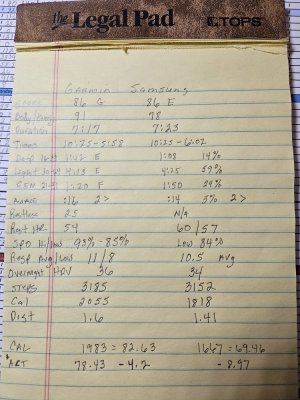 the Legal Pad TOPS
Garmin Samsung
Score 86 G 86 E
Body/Energy 91 78
Duration 7:17 7:23
Times 10:25-5:58 10:25-6:02
Deep 1:42 E 1:08 14%
Light 4:13 E 4:25 59%
REM 21-31 1:20 F 1:50 24%
Awake :16 2> :14 3% 2>
Restless 25 N/A
Rest HR 54 60/57
SPO Hi/Low 98% - 85% Low 84%
Resp Avg/Low 11/8 10.5 Avg
Overnight HRV 36 34
STEPS 3185 3152
Cal 2055 1818
Dist 1.6 1.41
CAL 1983 = 82.63 1667 = 69.46
78.43 -4.2 -8.97